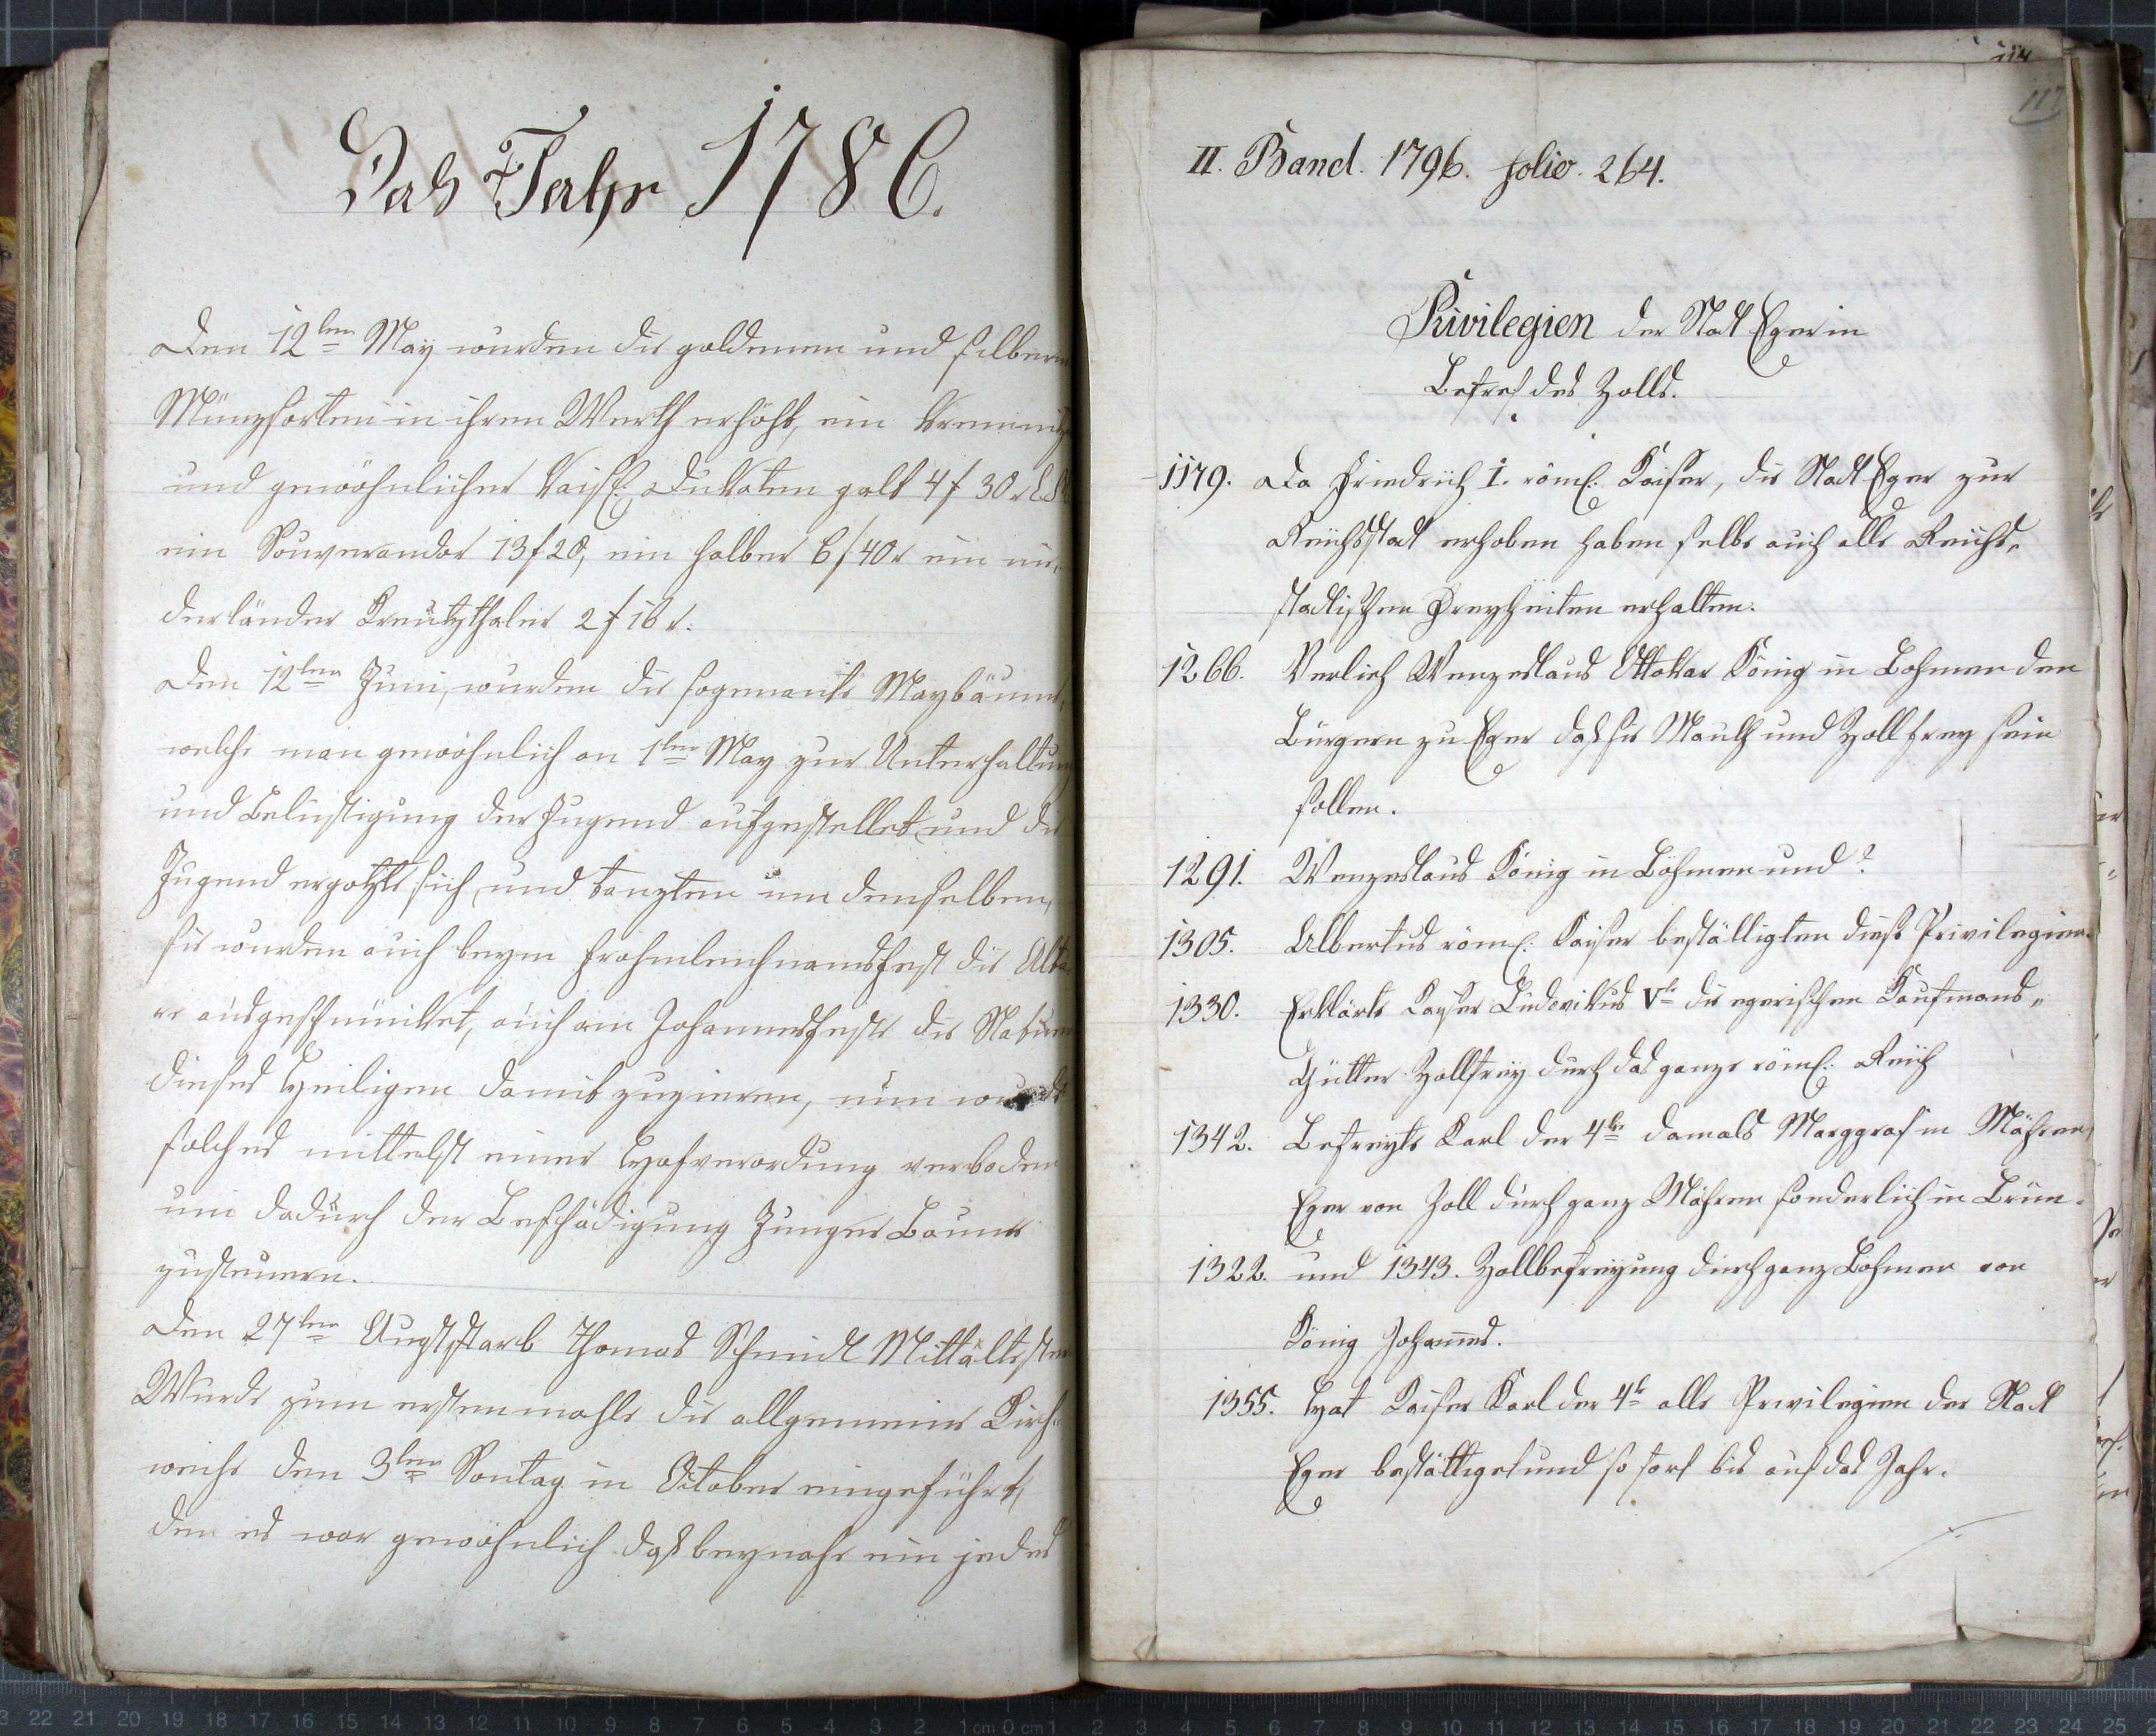 Das Jahr 1786.
Den 12ten May wurden die goldenen und silberne
Münzsorten in ihren Werth erhöht, ein Kremnitz
und gewöhnlicher kaisl. Dukaten galt 4 f 30 x
ein Souverandor 13 f 20, ein halber 6 f 40 x ein nie-
derländer Kreutzthaler 2 f 16 x.
Den 12ten Juni, wurden die sogenante Maybäume,
welche man gewöhnlich an 1ten May zur Unterhaltung
und Belustigung der Jugend aufgestellet, und die
Jugend ergotzte sich, und tanzten um denselben,
sie wurden auch beym Frohnleichnamsfest die Altä
re ausgeschmücket, auch am Johannesfeste die Statuen
dieses Heiligen damit zuzieren, nun wurde
solches mittelst einer Hofverordung verboden
um dadurch der Beschädigung Junger Baume
zusteuern.
Den 27ten Augst starb Thomas Schmidl Mittältister
Wurde zum erstenmahle die allgemeine Kirch-
weihe den 3ten Sontag in October eingeführt,
den es war gewöhnlich daß beynahe ein jedes
114
117
II. Band. 1796. folio. 264.
Privilegien der Stadt Eger in
Betref des Zolls.
1179. Da Friedrich I. röml. Kaiser, die Stadt Eger zur
Reichsstadt erhoben haben selbe auch alle Reichs-
stadtischen Freyheiten erhalten.
1266. Verlieh Wenzeslaus Ottokar König in Bohmen den
Bürgern zu Eger daß sie Mauth und Zollfrey sein
sollen.
1291. Wenzeslaus König in Böhmen und?
1305. Albertus röml. Kaiser bestättigten diese Privilegien.
1330. Erklärte Kayser Ludovikus Vte die egerischen Kaufmans-
Gütter Zollfrey durch das ganze röml. Reich
1342. Befreyte Karl der 4te damals Marggraf in Mähren,
Eger von Zoll durch ganz Mähren sonderlich in Brün.
1322. und 1343. Zollbefreyung durch ganz Bohmen von
König Johannes.
1355. Hat Kaiser Karl der 4te alle Privilegien der Stadt
Eger bestättiget und so fort bis auf das Jahr.